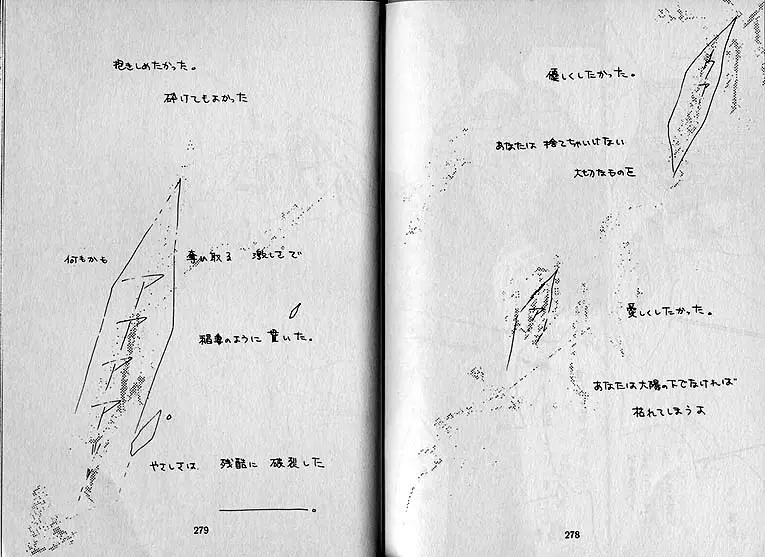 優しくしたかった。
ア
ア
あなたは 捨てちゃいけない
大切なものを
ア
愛しくしたかった。
あなたは太陽の下でなければ
枯れてしまうよ
278
抱きしめたかった。
砕けてもよかった
何もかも 奪い取る 激しさで
ア
ア
ア
ア
稲妻のように 貫いた。
やさしさは、 残酷に 破裂した
。
279